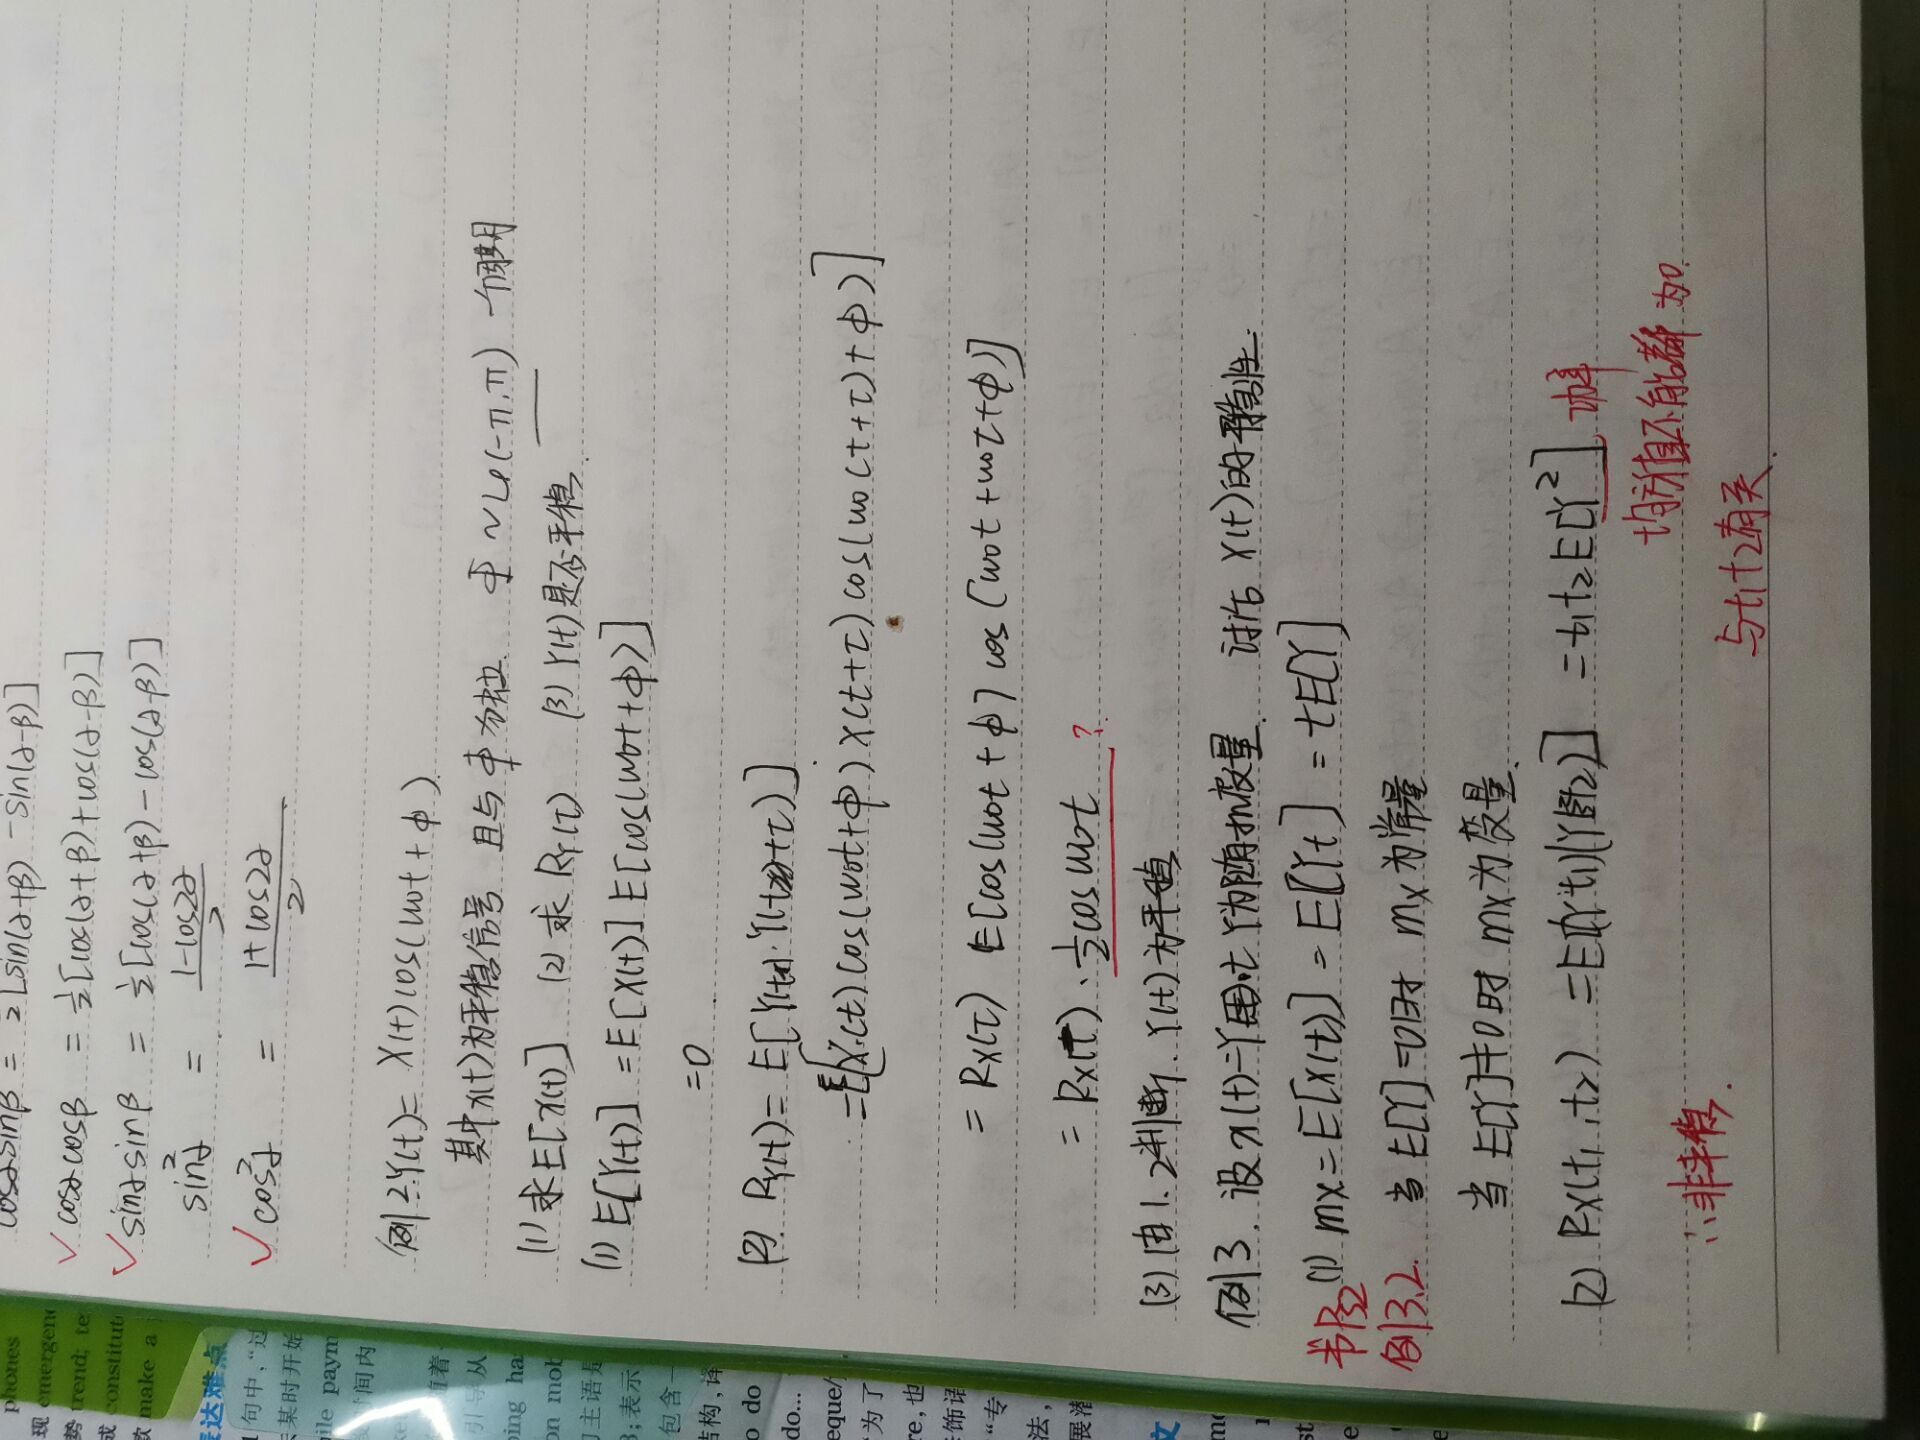 phones
现 emergen
势 trend; te
成 constitut
款 make a
表达难点
句中，“过
某时开始
ile paym
段时间内
随着
引导从
ping ha
on mob
主语是
3；表示
包含一
结构，译
o do
do...
eque/
“为了
re，也
饰语
“专
法，
展潜
文
cosαsinβ = ½[sin(α+β) - sin(α-β)]
✓ cosαcosβ = ½[cos(α+β)+cos(α-β)]
✓ sinαsinβ = ½[cos(α+β)-cos(α-β)]
sin²α = (1-cos2α)/2
✓ cos²α = (1+cos2α)/2
例2.Y(t)= X(t)cos(ω0t+Φ).
其中x(t)为平稳信号 且与Φ为独立. Φ~U(-π,π) 一个周期
(1) 求E[x(t)] (2) 求 RY(τ) (3) Y(t)是否平稳.
(1) E[Y(t)] = E[X(t)] E[cos(ω0t+Φ)]
=0
(2). RY(t)= E[Y(t)·Y(t+τ)]
=E[X(t)cos(ω0t+Φ)X(t+τ)cos(ω0(t+τ)+Φ)]
= RX(τ) E[cos(ω0t+Φ) cos(ω0t+ω0τ+Φ)]
= RX(τ)·½cosω0τ ?
(3) 由1.2判断. Y(t)为平稳
例3. 设x(t)=Y·t Y为随机变量. 讨论 X(t)的平稳性.
书P32 (1) mx=E[X(t)] = E[Yt] = tE[Y]
例3.2. 当 E[Y]=0时 mx为常量
当 E[Y]≠0时 mx为变量.
(2) RX(t1,t2) =E[(Yt1)(Yt2)] =t1t2E[Y²] 功率
均方值不能都为0.
∴非平稳.
与t1t2有关.